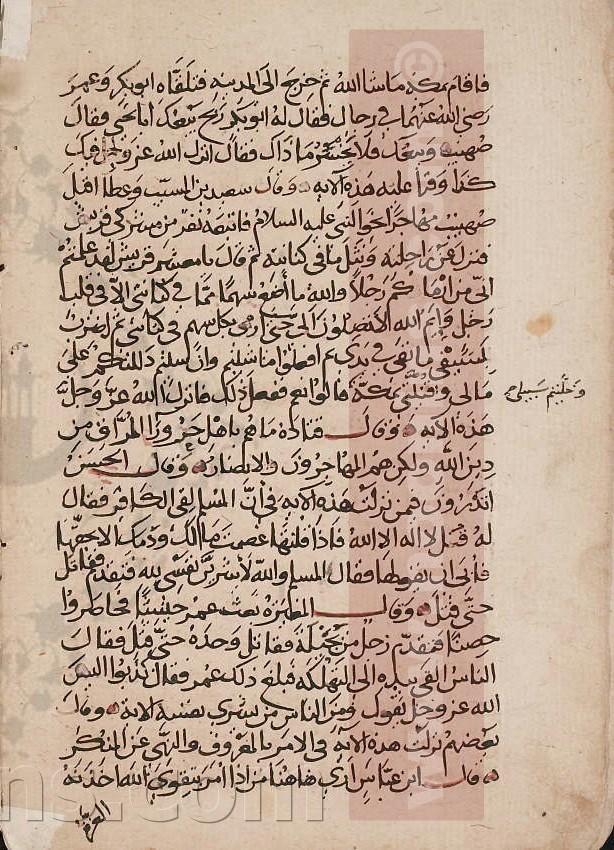 فاقام بمكة ماشا الله ثم خرج الى المدينه فتلقاه ابو بكر وعمر
رضى الله عنهما فى رجال فقال له ابو بكر ربح بيعك ابا يحيى فقال
صهيب وبيعك فلا يخسر ما ذاك فقال انزل الله عز وجل فيك
كذا وقرا عليه هذه الآيه وقال سعيد بن المسيب وعطا اقبل
صهيب مهاجرا نحو النبى عليه السلام فاتبعه نفر من مشركى قريش
فنزل عن راحلته ونثل ما فى كنانته ثم قال يا معشر قريش لقد علمتم
انى من ارماكم رجلا والله ما أضع سهما مما فى كنانتى الا فى قلب
رجل وايم الله لا تصلون الى حتى ارمى بكل سهم فى كنانتى ثم اضرب
بسيفى ما بقى فى يدى ثم افعلوا ما شئتم وان شئتم دللتكم على
مالى بمكة قالوا نعم ففعل ذلك فانزل الله عز وجل
وخليتم سبيلى
هذه الآيه وقال قتادة ما هم باهل حرورا المراق من
دين الله ولكن هم المهاجرون والانصار وقال الحسن
اتدرون فيمن نزلت هذه الآيه فى أن المسلم لقى الكافر فقال
له قل لا اله الا الله فاذا قلتها عصمت مالك ودمك الا بحقها
فأبى ان يقولها فقال المسلم والله لأشرين نفسى لله فتقدم فقاتل
حتى قتل وقال المغيرة بعث عمر جيشا فحاصروا
حصنا فتقدم رجل من بجيلة فقاتل وحده حتى قتل فقال
الناس القى بيده الى التهلكه فبلغ ذلك عمر فقال كذبوا اليس
الله عز وجل يقول ومن الناس من يشرى نفسه الآيه وقال
بعضهم نزلت هذه الآيه فى الامر بالمعروف والنهى عن المنكر
قال ابن عباس ارى هاهنا من اذا امر بتقوى الله اخذته
العزة
ns.com